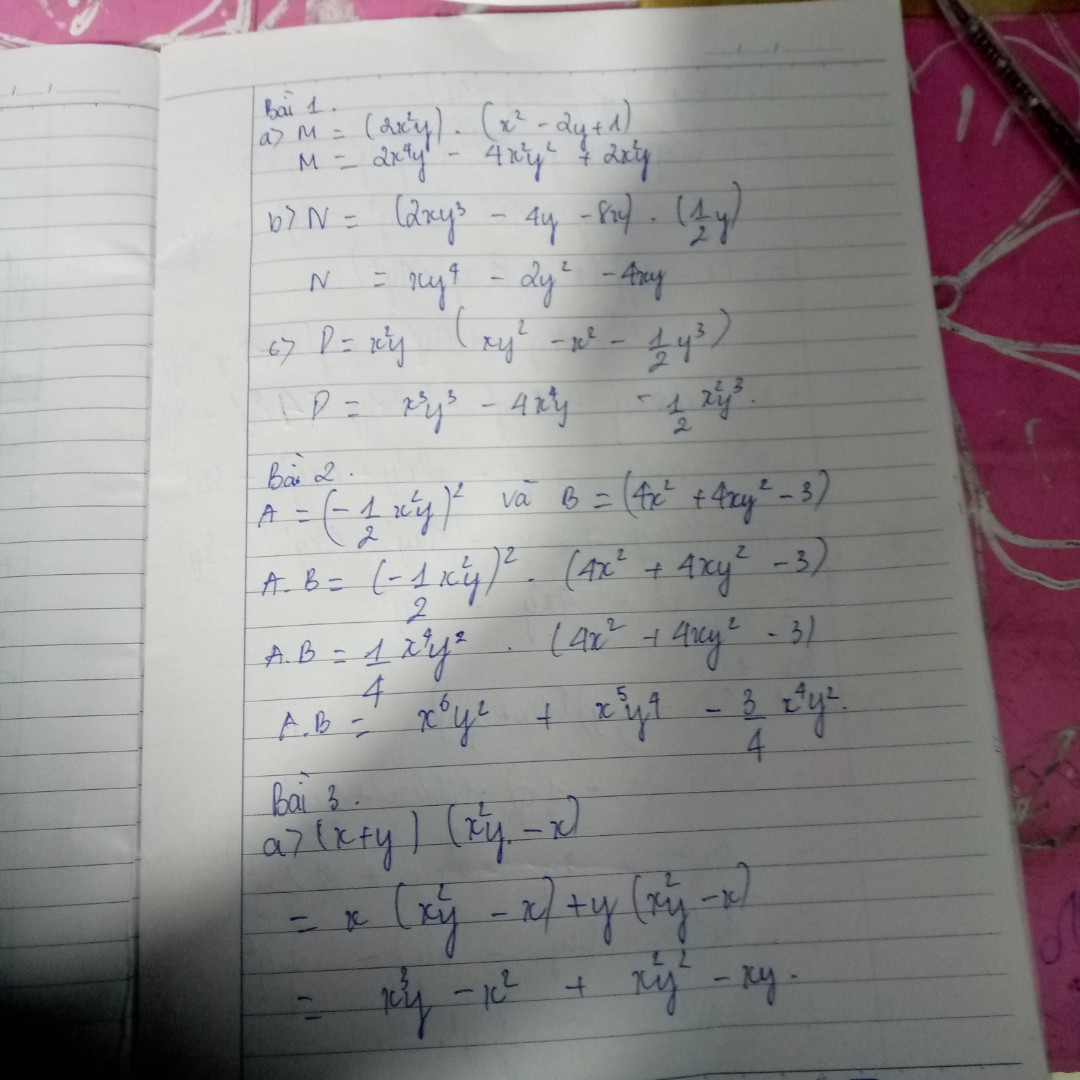 Bài 1.
a) M = (2x²y) . (x² - 2y + 1)
M = 2x⁴y - 4x²y² + 2x²y
b) N = (2xy³ - 4y - 8x) . (1/2 y)
N = xy⁴ - 2y² - 4xy
c) P = x²y (xy² - x² - 1/2 y³)
P = x³y³ - 4x⁴y - 1/2 x²y³.
Bài 2.
A = (-1/2 x²y)² và B = (4x² + 4xy² - 3)
A.B = (-1/2 x²y)² . (4x² + 4xy² - 3)
A.B = 1/4 x⁴y² . (4x² + 4xy² - 3)
A.B = x⁶y² + x⁵y⁴ - 3/4 x⁴y².
Bài 3.
a) (x+y) (x²y - x)
= x (x²y - x) + y (x²y - x)
= x³y - x² + x²y² - xy.